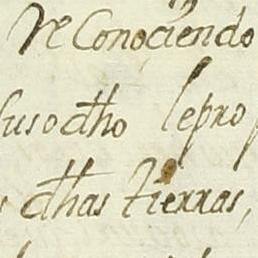 reConoçiendo
susodho lepro
dhas tierras,